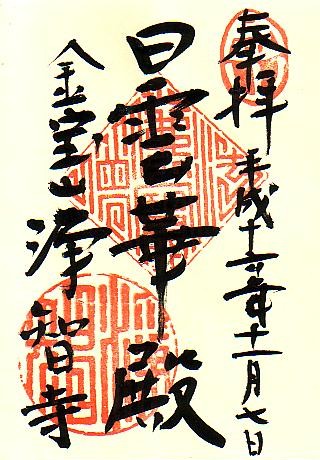 奉拝 平成十六年十一月七日
曇華殿
金宝山 浄智寺